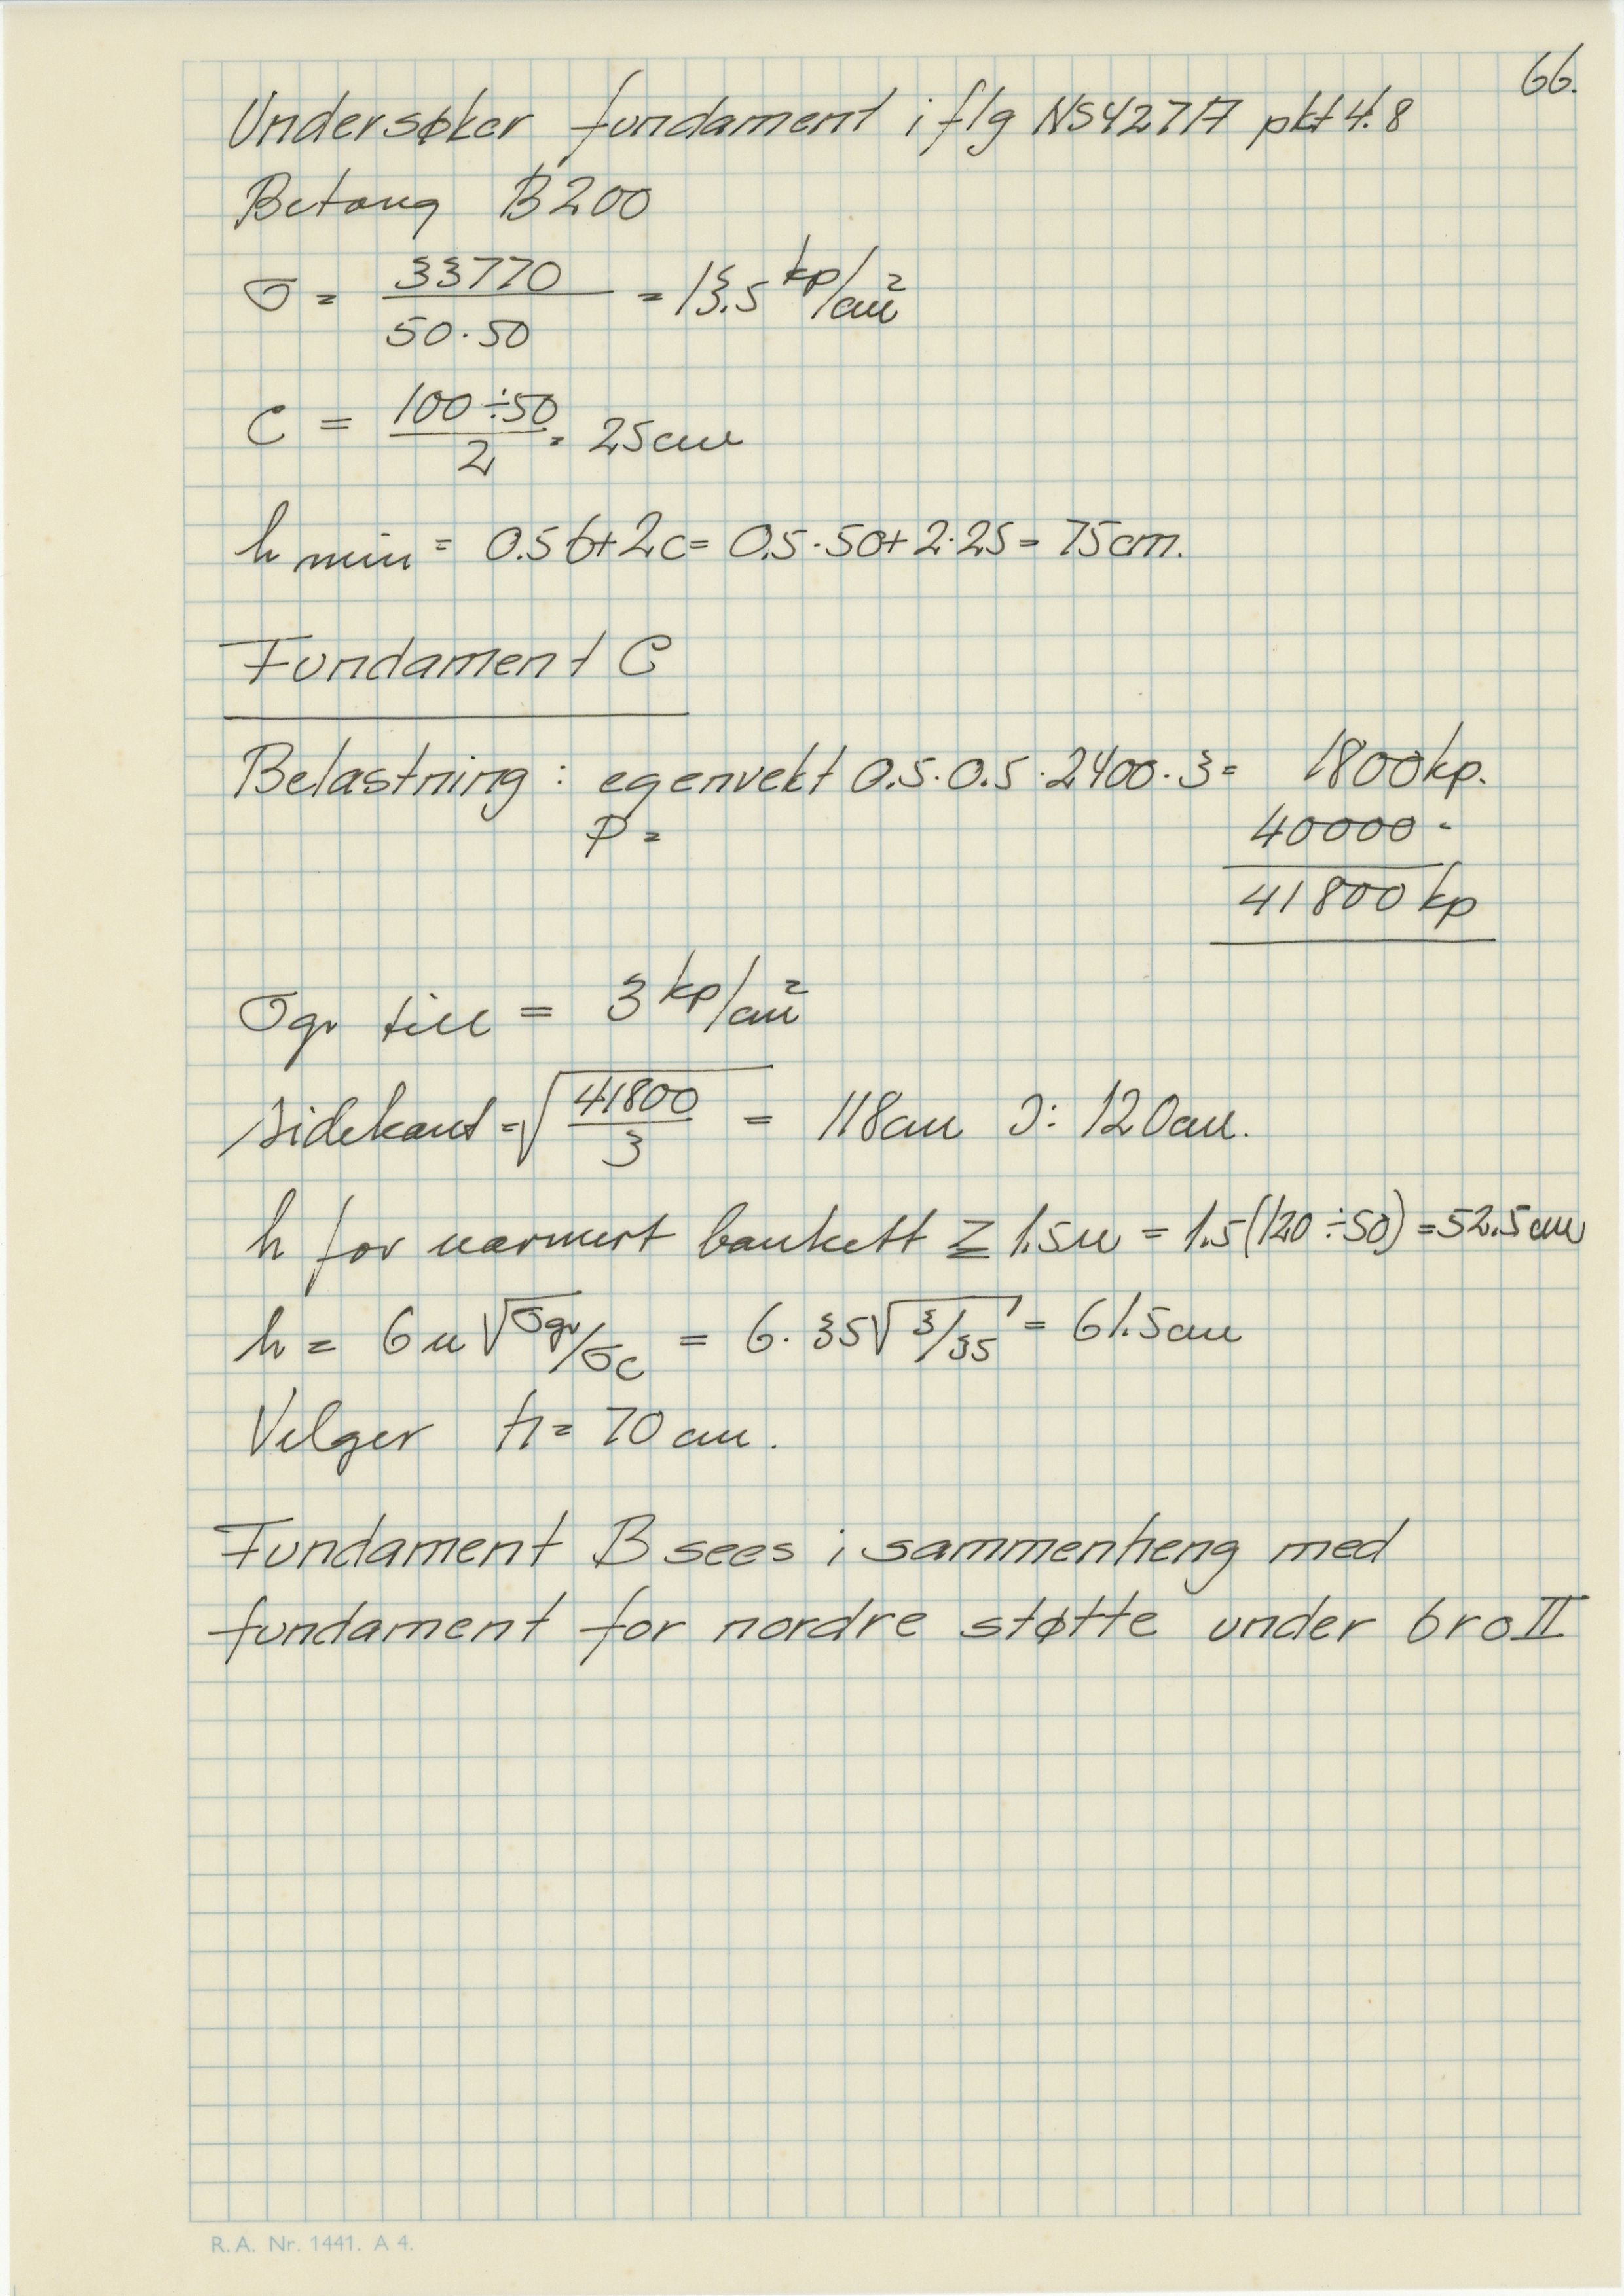 66.
Undersøker fundament iflg NS427A pkt 4.8
Betong B200
σ = 33770 / 50·50 = 13.5 kp/cm²
C = 100÷50 / 2 = 25cm
h min = 0.5b+2c = 0.5·50+2·25 = 75cm.
Fundament C
Belastning: egenvekt 0.5·0.5·2400·3= 1800kp.
P = 40000 -
41800 kp
σgr till = 3 kp/cm²
sidekant = √41800/3 = 118cm ɔ: 120cm.
h for uarmert bankett ≥ 1.5u = 1.5(120÷50) = 52.5cm
h = 6u√σgr/σc = 6·35√3/35 = 61.5cm
Velger h = 70cm.
Fundament B sees i sammenheng med
fundament for nordre støtte under bro II
R.A. Nr. 1441. A 4.